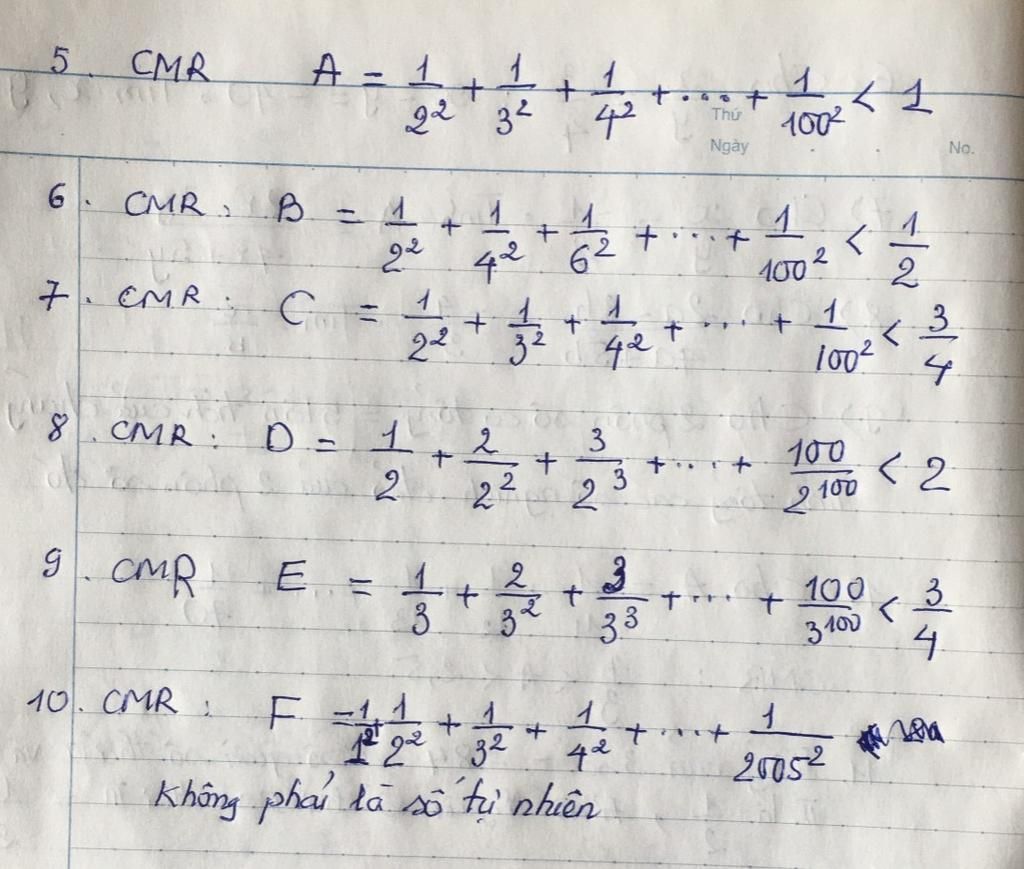 5. CMR A = 1/2² + 1/3² + 1/4² + ... + 1/100² < 1
Thứ
Ngày No.
6. CMR: B = 1/2² + 1/4² + 1/6² + ... + 1/100² < 1/2
7. CMR: C = 1/2² + 1/3² + 1/4² + ... + 1/100² < 3/4
8. CMR: D = 1/2 + 2/2² + 3/2³ + ... + 100/2¹⁰⁰ < 2
9. CMR E = 1/3 + 2/3² + 3/3³ + ... + 100/3¹⁰⁰ < 3/4
10. CMR: F = 1/1² + 1/2² + 1/3² + 1/4² + ... + 1/2005²
không phải là số tự nhiên